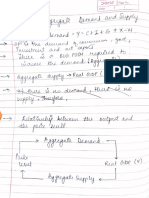 Aggregate Demand and Supply
Demand = Y = C + I + G + X - M
is the demand of consumer, govt,
Investment and net exports
There is a required to
increase the demand (Aggregate)
Aggregate Supply → Real GDP (Y)
→ If there is no demand, there is no
supply, Therefore,
Relationship between the output and
the price level
Aggregate Demand
Price
level
Real GDP (Y)
Aggregate Supply